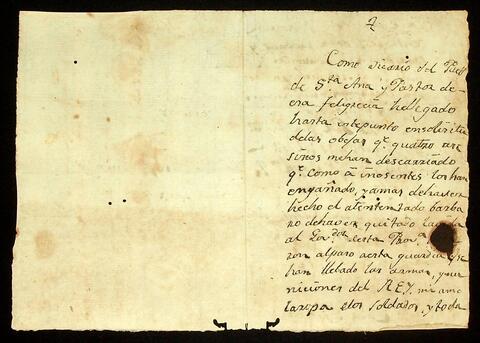 2
Como vicario del Pueblo
de S.ta Ana y Pastor de
esa feligrecia he llegado
hasta este punto en solicitud
de las obejas q.e quatro ase
sinos me han descarriado
q.e como á inosentes los han
engañado, y amas de haver
hecho el atentado barba
ro de haver quitado la vida
al Gov.dor desta Prov.a
ron al paso a esta guardia
han llebado las armas, y mu
niciones del REY,
la ropa a los soldados, y toda